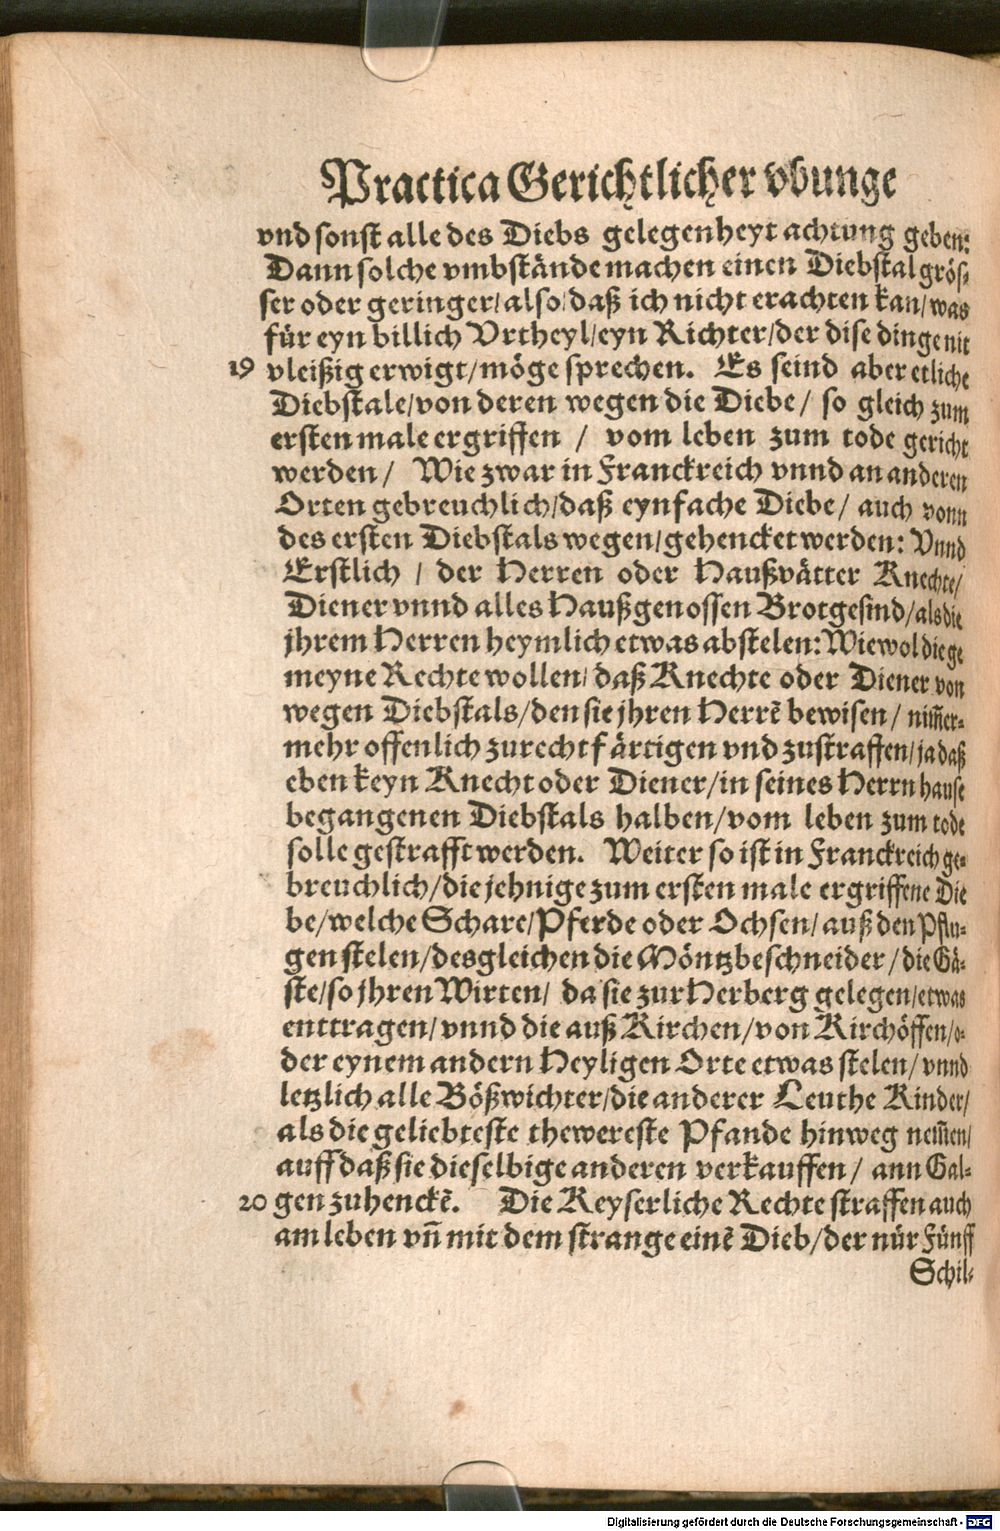 Practica Gerichtlicher vbunge
vnd sonst alle des Diebs gelegenheyt achtung geben:
Dann solche vmbstände machen einen Diebstal grös-
ser oder geringer/ also/ daß ich nicht erachten kan/ was
für eyn billich Vrtheyl/ eyn Richter/ der dise dinge nit
19 vleißig erwigt/ möge sprechen. Es seind aber etliche
Diebstale/ von deren wegen die Diebe/ so gleich zum
ersten male ergriffen / vom leben zum tode gericht
werden/ Wie zwar in Franckreich vnnd an anderen
Orten gebreuchlich/ daß eynfache Diebe/ auch vonn
des ersten Diebstals wegen/ gehencket werden: Vnnd
Erstlich / der Herren oder Haußvätter Knechte/
Diener vnnd alles Haußgenossen Brotgesind/ als die
jhrem Herren heymlich etwas abstelen: Wiewol die ge
meyne Rechte wollen/ daß Knechte oder Diener von
wegen Diebstals/ den sie jhren Herrē bewisen/ nim̄er-
mehr offenlich zurechtfärtigen vnd zustraffen/ ja daß
eben keyn Knecht oder Diener/ in seines Herrn hause
begangenen Diebstals halben/ vom leben zum tode
solle gestrafft werden. Weiter so ist in Franckreich ge-
breuchlich/ die jehnige zum ersten male ergriffene Die
be/ welche Schare/ Pferde oder Ochsen/ auß den Pflu-
gen stelen/ desgleichen die Möntzbeschneider/ die Gä-
ste/ so jhren Wirten/ da sie zur Herberg gelegen/ etwas
enttragen/ vnnd die auß Kirchen/ von Kirchöffen/ o-
der eynem andern Heyligen Orte etwas stelen/ vnnd
letzlich alle Bößwichter/ die anderer Leuthe Kinder/
als die geliebteste thewereste Pfande hinweg nem̄en/
auff daß sie dieselbige anderen verkauffen/ ann Gal-
20 gen zuhenckē. Die Keyserliche Rechte straffen auch
am leben vn̄ mit dem strange einē Dieb/ der nür Fünff
Schil-
Digitalisierung gefördert durch die Deutsche Forschungsgemeinschaft - DFG